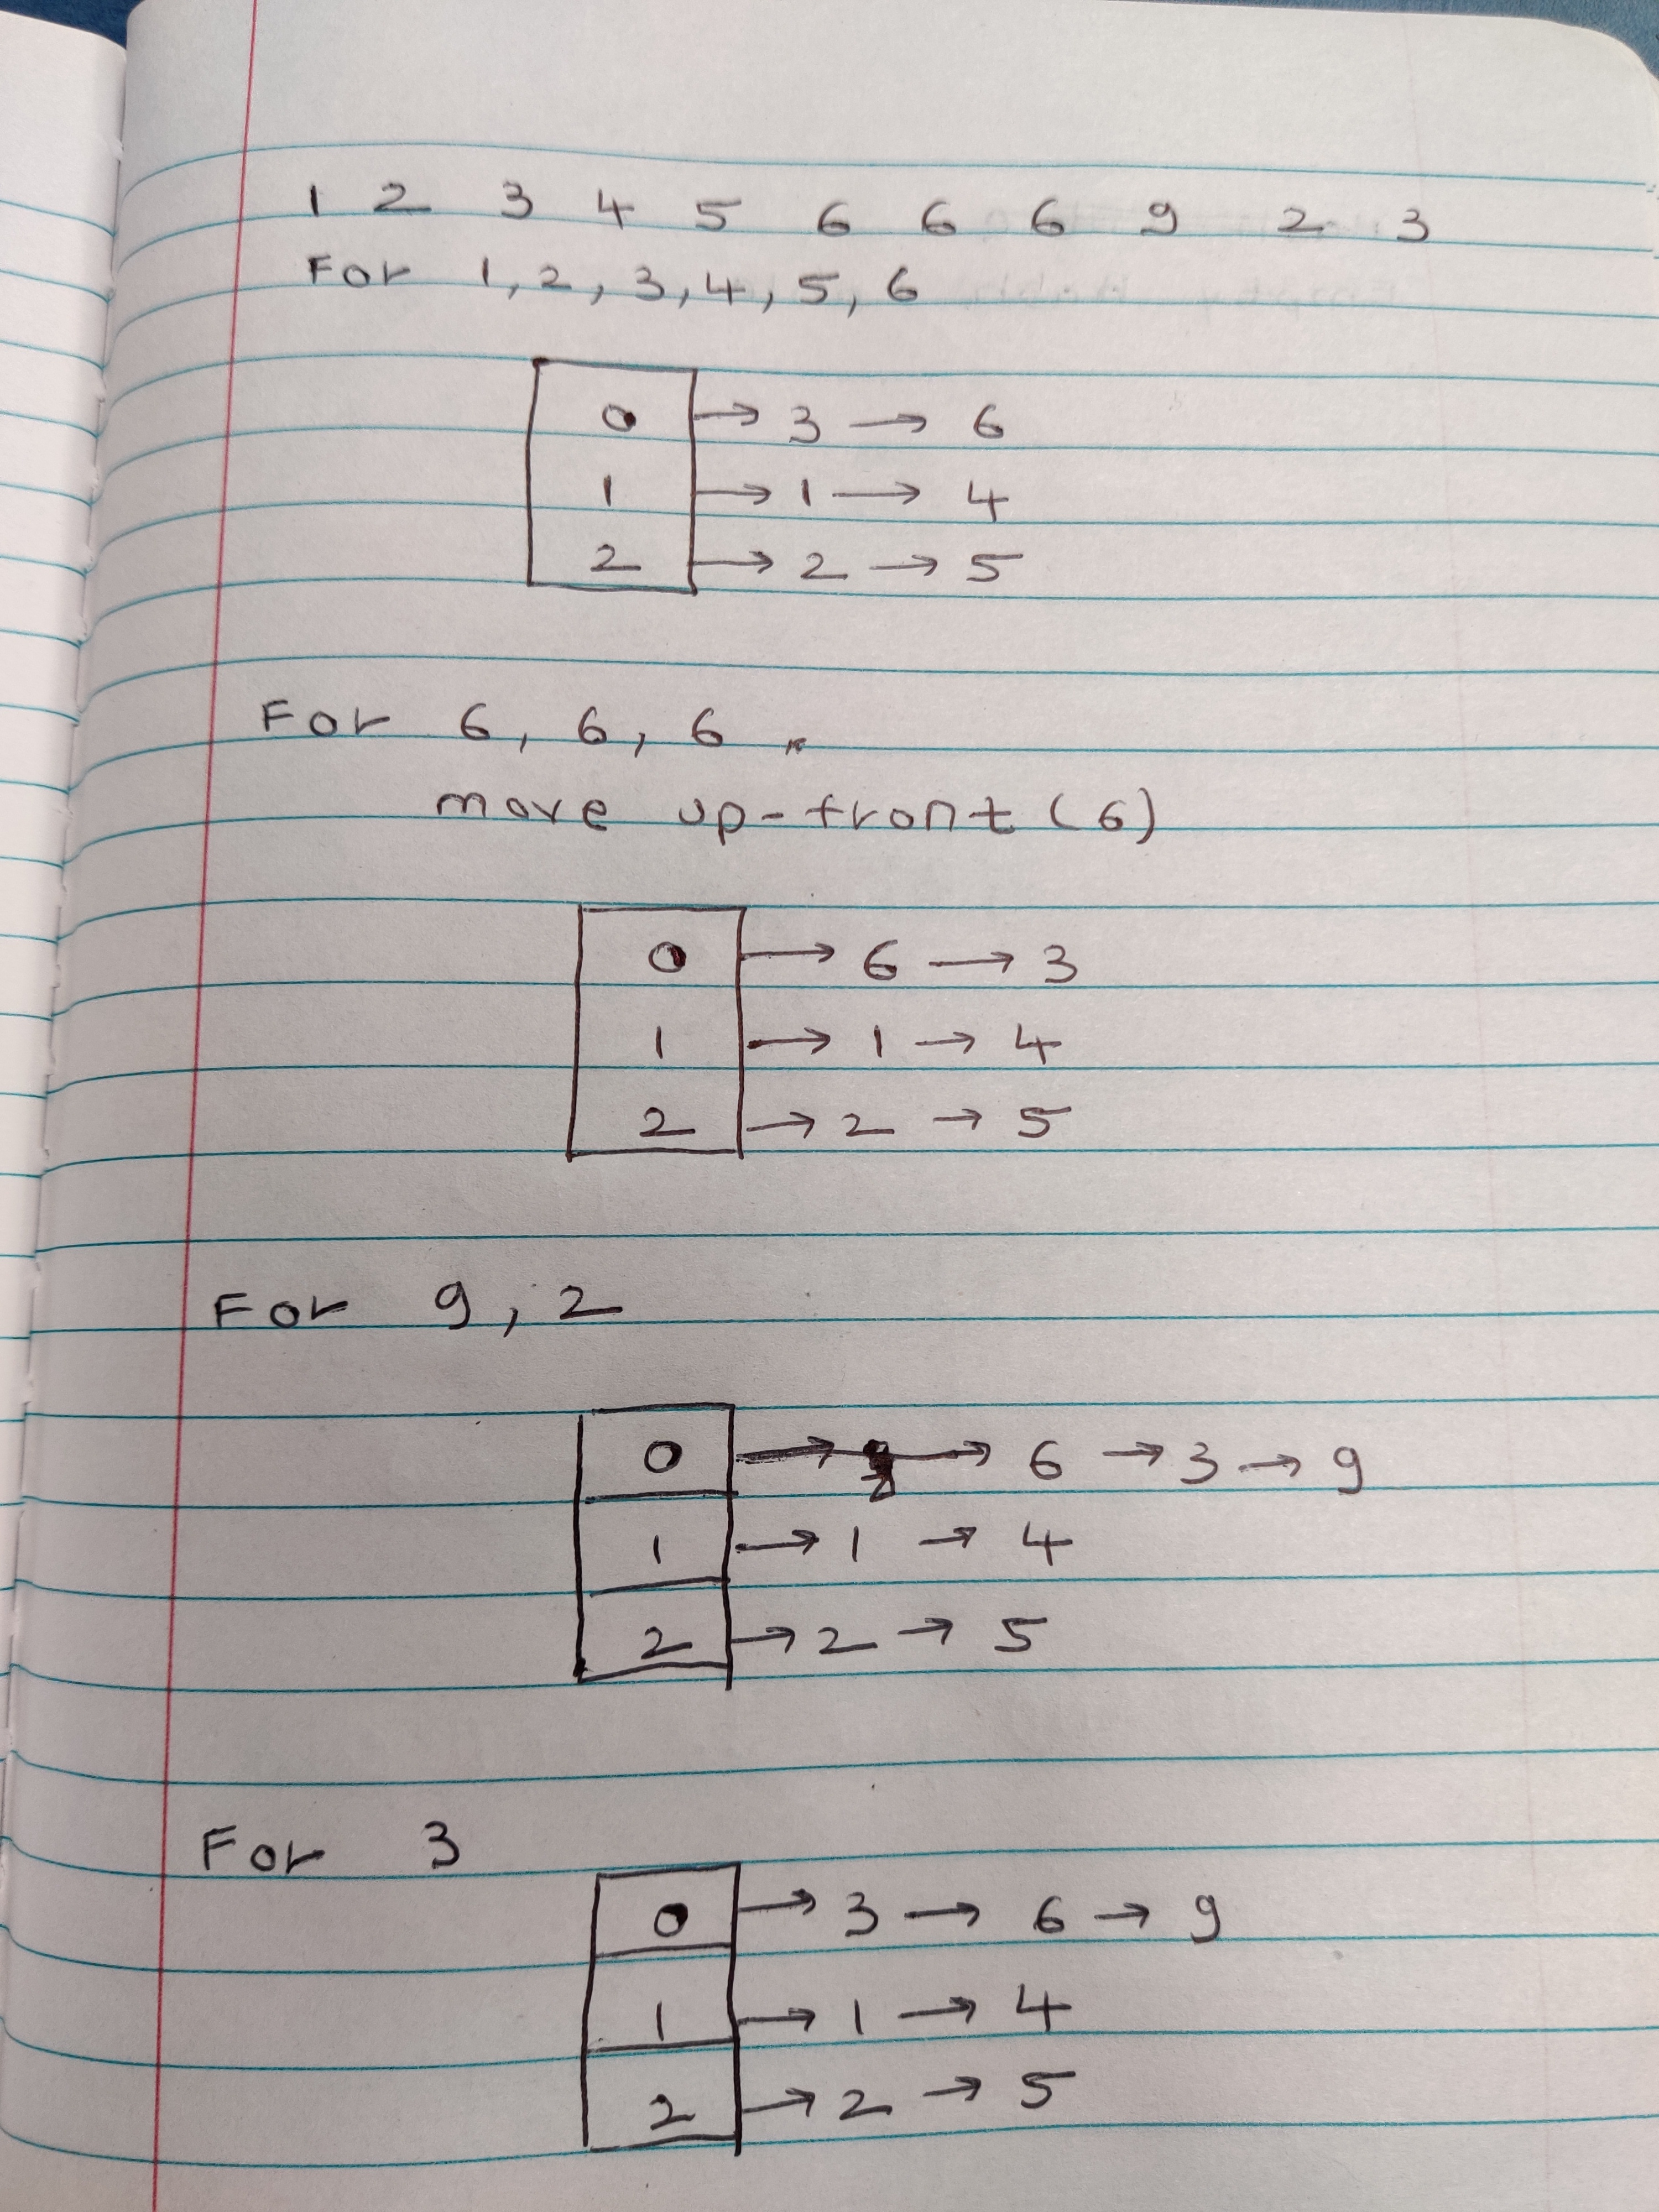 1 2 3 4 5 6 6 6 9 2 3
For 1, 2, 3, 4, 5, 6
0 → 3 → 6
1 → 1 → 4
2 → 2 → 5
For 6, 6, 6
move up-front (6)
0 → 6 → 3
1 → 1 → 4
2 → 2 → 5
For 9, 2
0 → → 6 → 3 → 9
1 → 1 → 4
2 → 2 → 5
For 3
0 → 3 → 6 → 9
1 → 1 → 4
2 → 2 → 5